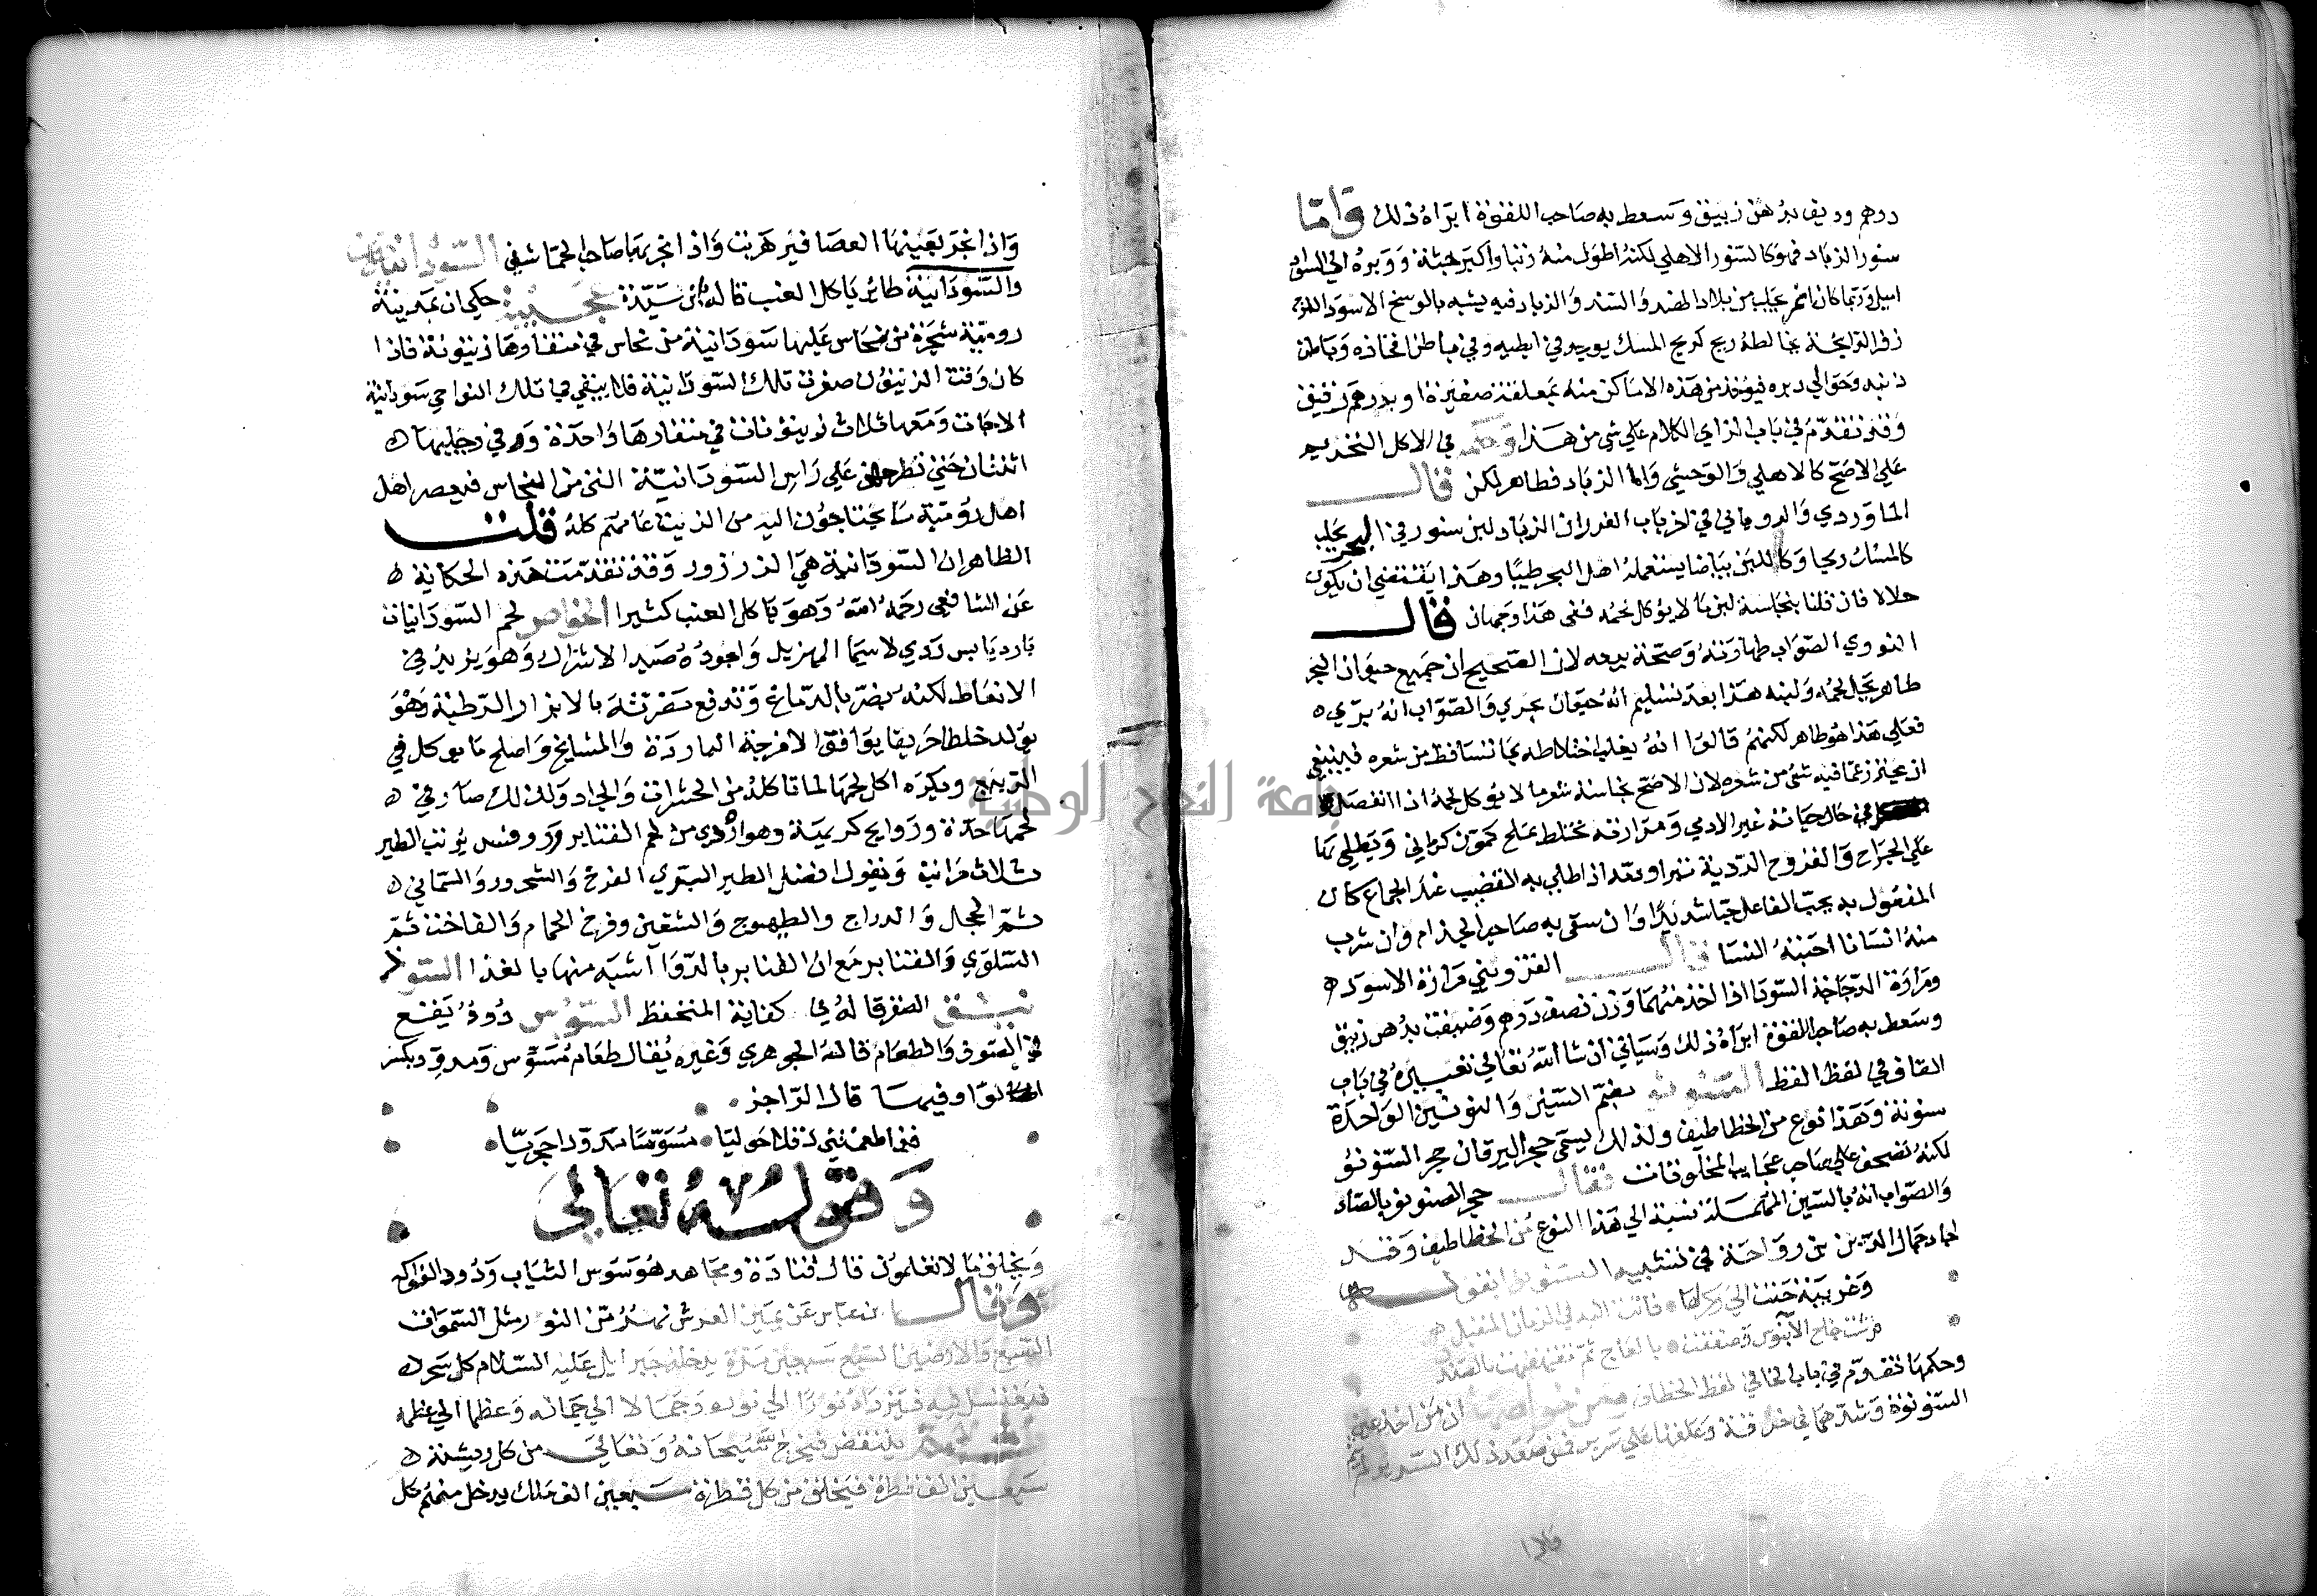 درهم وديف بدهن زنبق وسعط به صاحب اللقوة ابراه ذلك واما
سنور الزباد فهو كالسنور الاهلي لكنه اطول منه ذنبا واكبر جثة ووبره الي السواد
اميل وربما كان انمر يجلب من بلاد الهند والسند والزباد فيه يشبه بالوسخ الاسود اللزج
زفر الرايحة يخالطه ريح كريح المسك يوجد في ابطيه وفي باطن افخاذه وباطن
ذنبه وحوالي دبره فيوخذ من هذه الاماكن منه بمعلقة صغيرة او بدرهم رقيق
وقد تقدم في باب الزاي الكلام علي شي من هذا وحكمه في الاكل التحريم
علي الاصح كالاهلي والوحشي واما الزباد فطاهر لكن قال
الماوردي والروياني في اخر باب الغرر ان الزباد لبن سنور في البحر يجلب
كالمسك ريحا وكاللبن بياضا يستعمله اهل البحر طيبا وهذا يقتضي ان يكون
حلالا فان قلنا بنجاسة لبن ما لا يؤكل لحمه ففي هذا وجهان قال
النووي الصواب طهارته وصحة بيعه لان الصحيح ان جميع حيوان البحر
طاهر يحل لحمه ولبنه هذا بعد تسليم انه حيوان بحري والصواب انه بري
فعلي هذا هو طاهر لكنهم قالوا انه يغلب اختلاطه بما تساقط من شعره فينبغي
ان يحترز عما فيه شي من شعره لان الاصح نجاسة شعر ما لا يوكل لحمه اذا انفصل
في حال حياته غير الادمي ومرارته تخلط بملح كمون كرماني ويطلي بها
علي الجراح والقروح الردية تبرا ودمه اذا طلي به القضيب عند الجماع كان
المفعول به يحب الفاعل حبا شديدا وان سقي به صاحب الجذام وان شرب
منه انسانا احبته النسا قال القزويني مرارة الاسود
ومرارة الدجاجة السودا اذا اخذ منهما وزن نصف درهم وضيفت بدهن زنبق
وسعط به صاحب اللقوة ابراه ذلك وسياتي ان شا الله تعالي تعبيره في باب
القاف في لفظ القط السنونو بضم السين والنونين الواحدة
سنونة وهذا نوع من الخطاطيف ولذلك يسمي حجر اليرقان حجر السنونو
لكنه تصحف علي صاحب عجايب المخلوقات فقال حجر الصنونو بالصاد
والصواب انه بالسين المهملة نسبة الي هذا النوع من الخطاطيف وقد
اجاد جمال الدين بن رواحة في تشبيه السنونو بقوله
وغريبة حنت الي وكر لها فاتت اليه في الزمان المقبل
فرشت جناح الابنوس وصفقت بالعاج ثم تقهقهت بالصندل
وحكمها تقدم في باب الخا في لفظ الخطاف ومن خواصها ان من اخذ عيني
السنونوة وشدهما في خرقة وعلقها علي سرير فمن صعد ذلك السرير لم
واذا بخر بعينها العصافير هربت واذا انجر بها صاحب الحما شفي السودانيات
والسودانية طائر ياكل العنب قاله ابن سيدة عجيبة حكي ان بمدينة
رومية شجرة من نحاس عليها سودانية من نحاس في منقارها زيتونة فاذا
كان وقت الزيتون صفرت تلك السودانية فلا يبقي في تلك النواحي سودانية
الا جات ومعها ثلاث زيتونات في منقارها واحدة وفي رجليها
اثنتان حتي تطرحن علي راس السودانية التي من النحاس فيعصر اهل
اهل رومية ما يحتاجون اليه من الزيت عامهم كله قلت
الظاهر ان السودانية هي الزرزور وقد تقدمت هذه الحكاية
عن الشافعي رحمه الله وهو ياكل العنب كثيرا الخواص لحم السودانيات
بارد يابس ردي لا سيما المهزيل واجوده صيد الاشراك وهو يزيد في
الانعاظ لكنه يضر بالدماغ وتدفع مضرته بالابزار الرطبة وهو
يولد خلطا حريفا يوافق الامزجة الباردة والمشايخ واصلح ما يوكل في
الربيع ويكره اكل لحمها لما تاكله من الحشرات والجراد ولذلك صار في
لحمها حدة وروايح كريهة وهو اردي من لحم القنابر وروفس يرتب الطير
ثلاث مراتب ويقول افضل الطير البري الفرخ والشحرور والسماني
ثم الحجال والدراج والطيهوج والشفنين وفرخ الحمام والفاخت ثم
السلوي والقنابر مع ان القنابر بالدوا اشبه منها بالغذا السوذ
نيق الصقر قاله في كفاية المتحفظ السوس دود يقع
في الصوف والطعام قاله الجوهري وغيره يقال طعام مسوس ومدود بكسر
الواو فيهما قال الراجز
قد اطعمتني دقلا حوليا مسوسا مدودا حجريا
وقوله تعالى
ويخلق ما لا تعلمون قال قتادة ومجاهد هو سوس الثياب ودود الفواكه
وقال بن عباس عن يمين العرش نهر من النور مثل السموات
السبع والارضين السبع سبعين مرة يدخله جبرايل عليه السلام كل سحر
فيغتسل فيه فيزداد نورا الي نوره وجمالا الي جماله وعظما الي عظمه
ثم ينتفض فيخرج سبحانه وتعالى من كل ريشة
سبعين الف قطرة فيخلق من كل قطرة سبعين الف ملك يدخل منهم كل